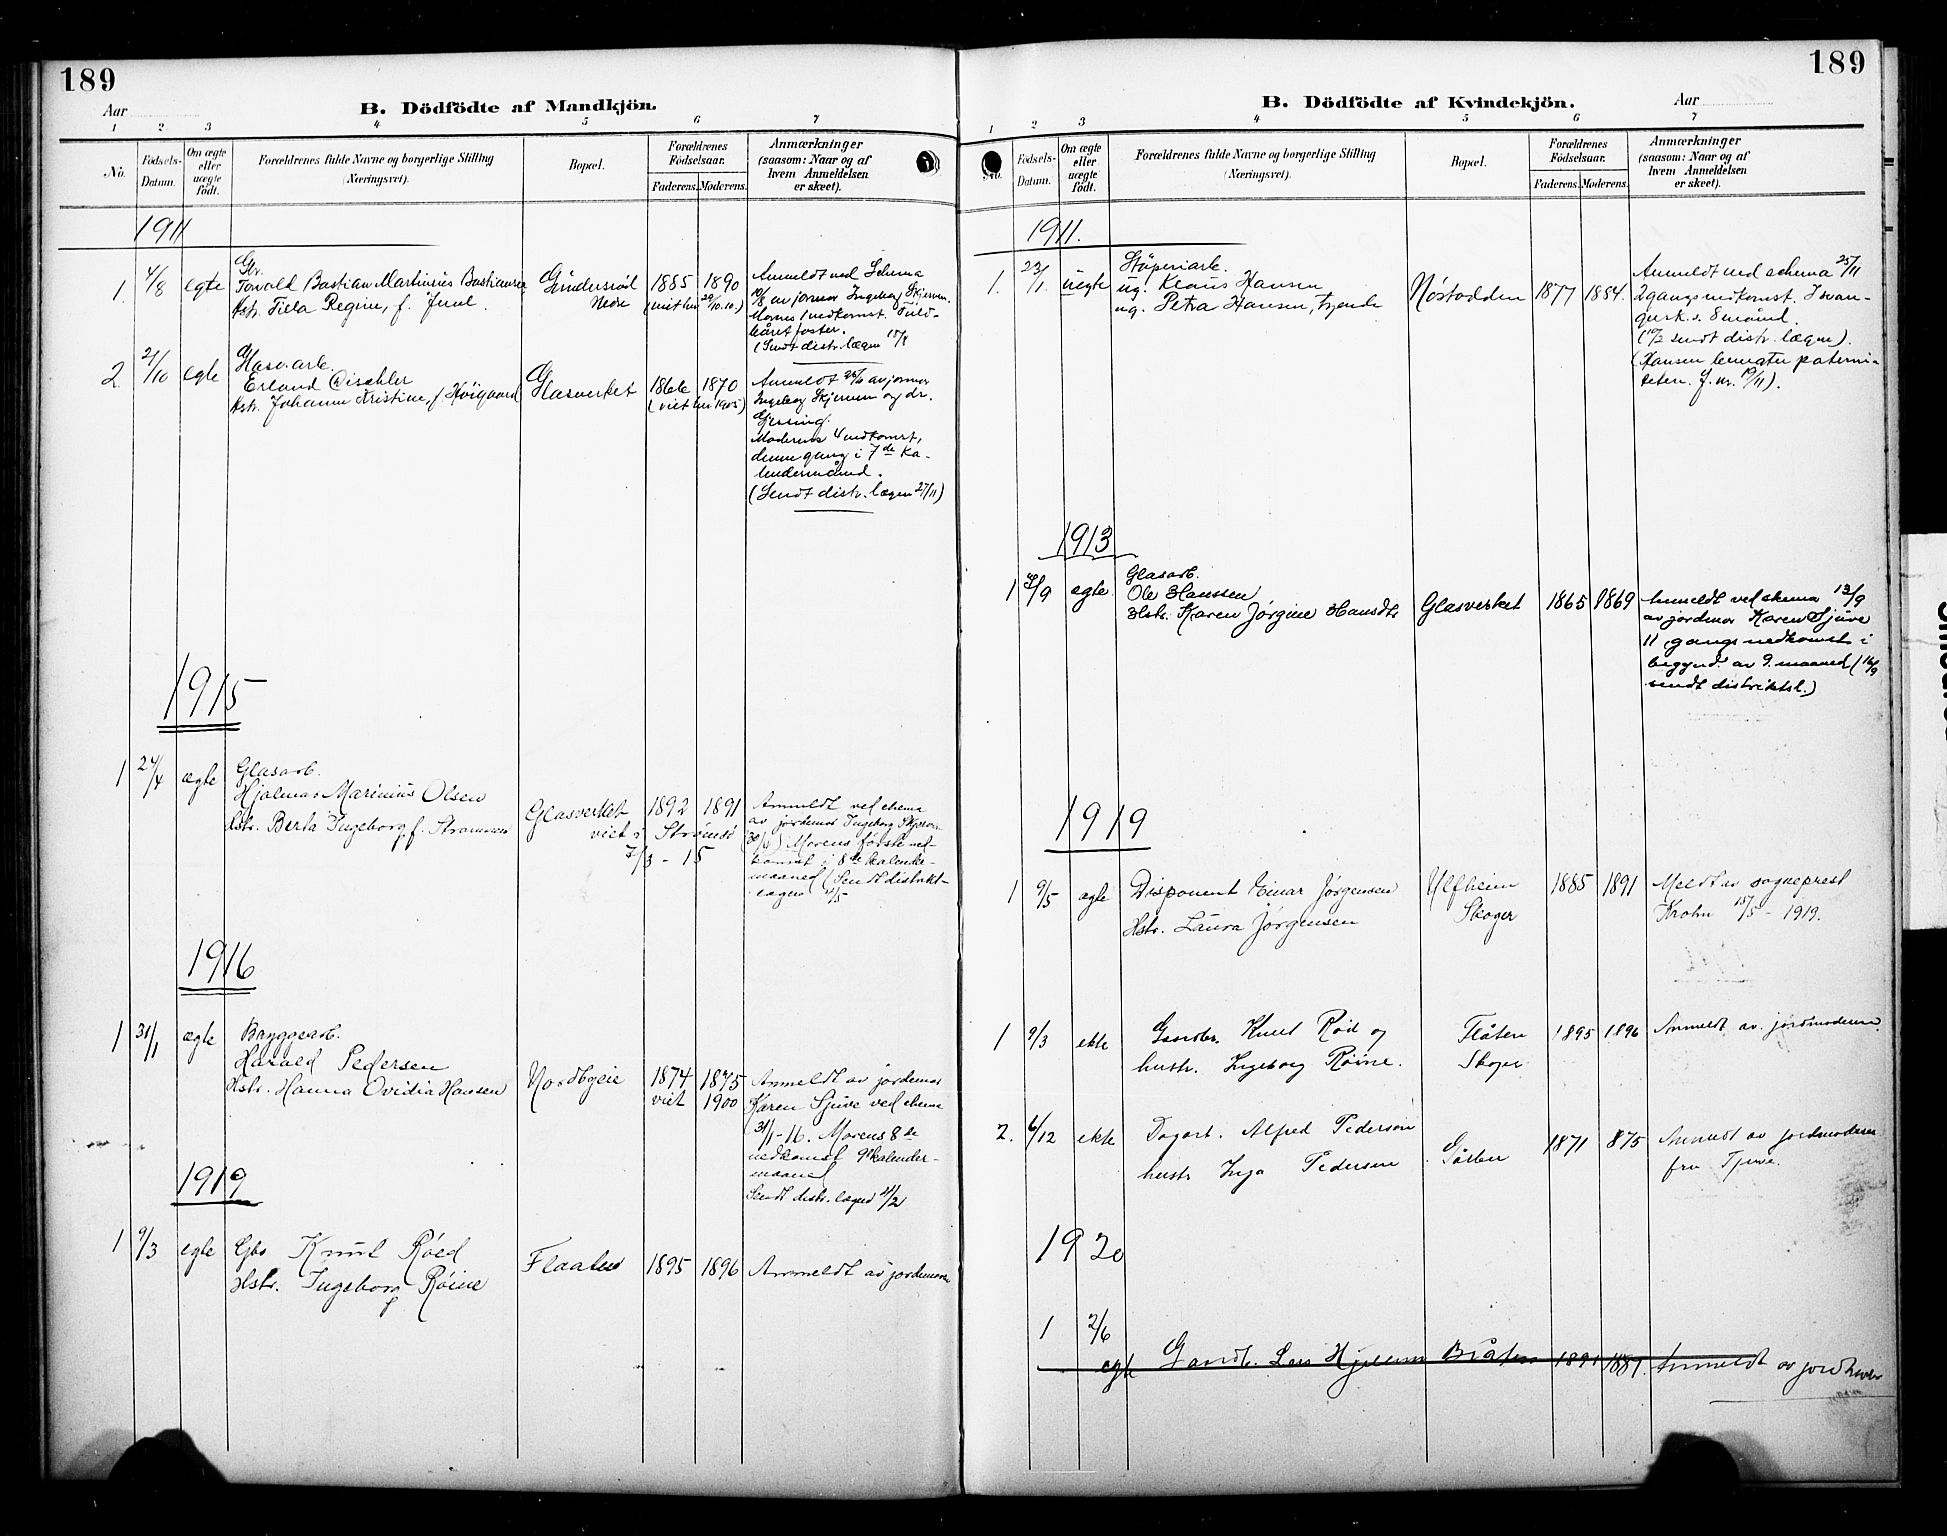 189
B. Dödfödte af Mandkjön.
Aar
1 2 3 4 5 6 7
No.
Födsels-Datum.
Om ægte eller uægte födt.
Forældrenes fulde Navne og borgerlige Stilling
(Næringsvei).
Bopæl.
Forældrenes Födselsaar.
Faderens. Moderens.
Anmærkninger
(saasom: Naar og af
hvem Anmeldelsen
er skeet).
1911
1. 4/8 egte Gbr.
Torvald Bastian Martinius Bastiansen
Hstr. Tiela Regine, f. Juul.
Gundersröl
Nedre
1885 1890
(viet her 29/10.10)
Anmeldt ved Schema
10/8 av jormor Ingeborg Skjerven.
Mornes 1 nedkomst. Fuld-
båret foster.
(Sendt distr. lægen 15/8
2. 21/10 egte Glasv.arb.
Erland Dischler
Hstr. Johanne Kristine, f. Höigaard
Glasverket
1866 1870
(viet her 1905)
Anmeldt 26/10 av jormor
Ingeborg Skjerven og dr.
Gjessing.
Moderens 4 nedkomst,
denne gang i 7de ka-
lendermånd.
(Sendt distr. lægen 27/11)
1915
1 24/4 ægte Glasarb.
Hjalmar Marinius Olsen
Hstr. Berta Ingeborg f.
Glasverket
viet i Strömsö
7/3 - 15
1892 1891
Anmeldt ved schema
av jordemor Ingeborg Skjerven
(30/4) Morens første ned-
komst i 8de kalender-
maaned (Sendt distrikt-
lægen 4/5
1916
1 31/1 ægte Bryggearb.
Harald Pedersen
Hstr. Hanna Ovidia Hansen
Nordbyeie
1874 1875
viet 1900
Anmeldt av jordemor
Karen Sjuve ved schema
31/1-16. Morens 8de
nedkomst 9de kalender-
maaned
Sendt distr. lægen 4/2
1919
1 9/3 egte Gbr Knut Röed
Hstr. Ingeborg f Röine
Flaaten
1895 1896
Anmeldt av jordemor
189
B. Dödfödte af Kvindekjön.
Aar
1 2 3 4 5 6 7
No.
Födsels-Datum.
Om ægte eller uægte födt.
Forældrenes fulde Navne og borgerlige Stilling
(Næringsvei).
Bopæl.
Forældrenes Födselsaar.
Faderens. Moderens.
Anmærkninger
(saasom: Naar og af
hvem Anmeldelsen
er skeet).
1911.
1. 23/1. uegte Stöperiarb.
ug. Klaus Hansen
ug. Petra Hansen, tjende
Nöstodden
1877 1884.
Anmeldt ved schema 25/11
2 gangs nedkomst. I svan-
gersk.s 8 månd.
(10/2 sendt distr. lægen).
(Hansen benegter paterni-
teten. J. nr. 19/11).
1913
1 4/9 egte Glasarb.
Ole Hanssen
Hstr. Karen Jørgine Hansdtr
Glasverket
1865 1869
Anmeldt ved skema 13/9
av jordmor Karen Sjuve
11 gangs nedkomst i
begynd. av 9. maaned (16/9
sendt distriktsl.)
1919
1 9/5 ægte Disponent Einar Jørgensen
Hstr. Laura Jørgensen
Ulfheim
Skoger
1885 1891
Meldt av sogneprest
Krohn 15/5 - 1919.
1 9/3 ekte Gaardbr. Knut Röd og
hustr. Ingeborg Röine.
Flåten
Skoger
1895 1896
Anmeldt av jordmoderen
2. 6/12 ekte Dagarb. Alfred Pedersen
hustr Inga Pedersen
1871 875
Anmeldt av jordmoderen
fru Tjuve.
1920
1 2/6
egte Gaardb. Lars Bråten 1891 1887. Anmeldt av jordmoder